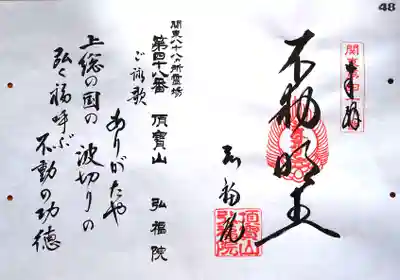 48
奉拝
不動明王
弘福院
頂寳山
弘福院
関東八十八ヵ所霊場
第四十八番 頂寳山 弘福院
ご詠歌
ありがたや
上総の国の 波切りの
弘く福呼ぶ 不動の功徳